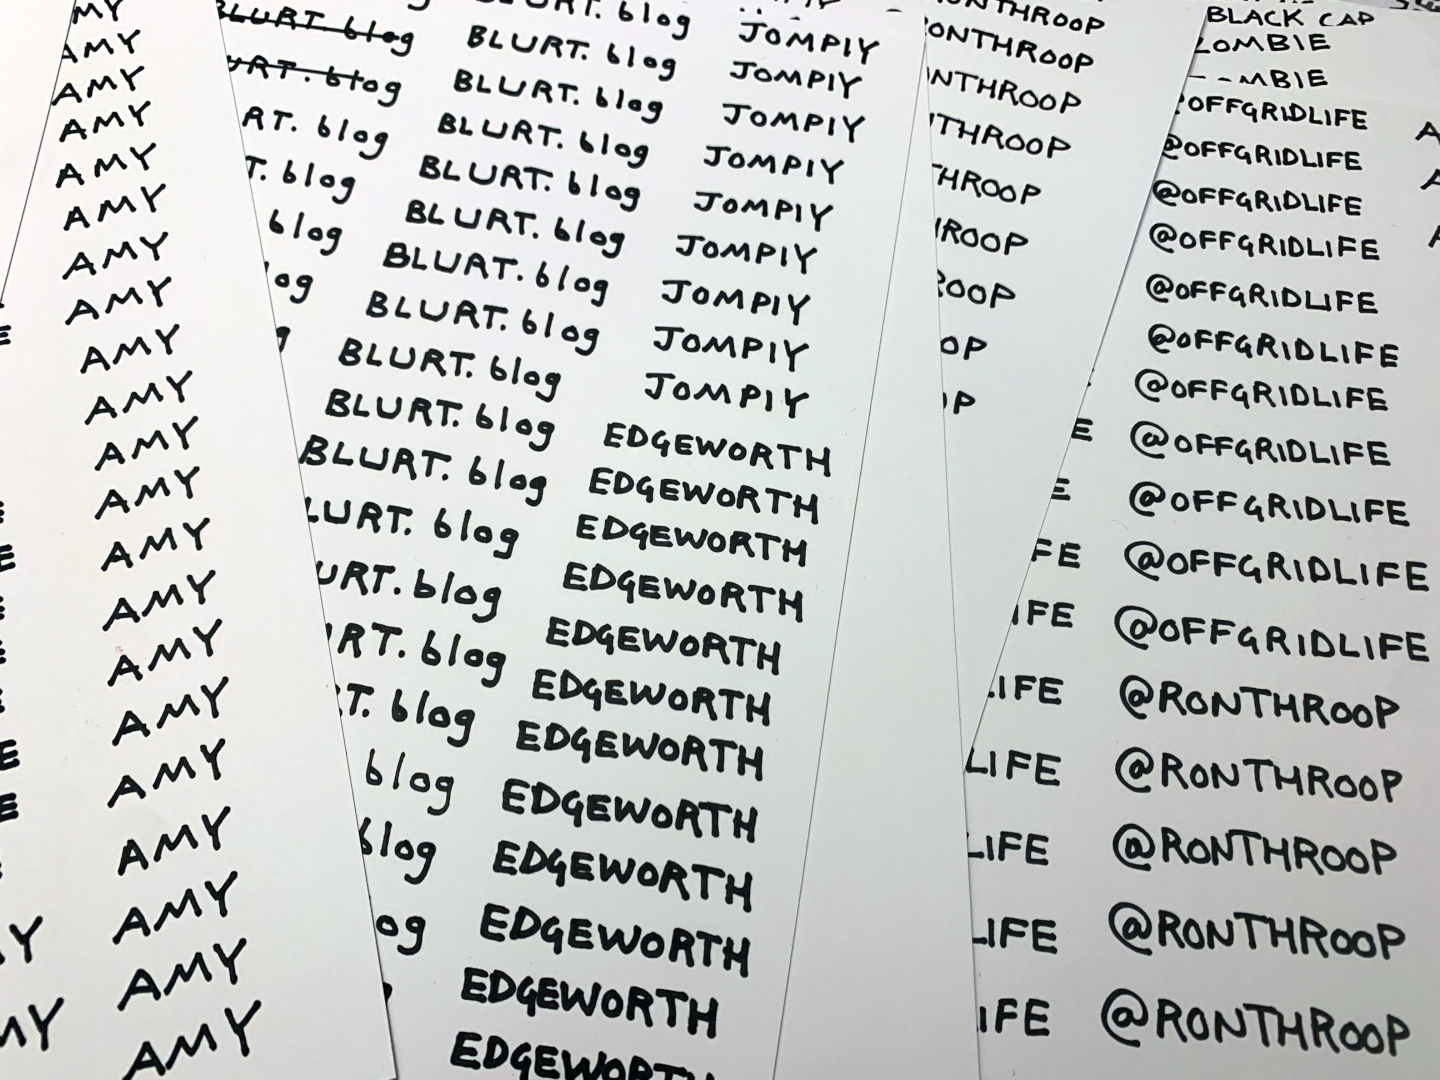 MY
AMY
AMY
AMY
AMY
AMY
AMY
AMY
AMY
AMY
AMY
AMY
AMY
AMY
AMY
AMY
AMY
AMY
AMY
AMY
AMY
MY
MY
BLURT blog
URT. blog
RT. blog
T. blog
blog
og
g
BLURT. blog
BLURT. blog
BLURT. blog
BLURT. blog
BLURT. blog
BLURT. blog
BLURT. blog
BLURT. blog
BLURT. blog
BLURT. blog
LURT. blog
URT. blog
URT. blog
RT. blog
blog
blog
og
JOMPIY
JOMPIY
JOMPIY
JOMPIY
JOMPIY
JOMPIY
JOMPIY
JOMPIY
JOMPIY
EDGEWORTH
EDGEWORTH
EDGEWORTH
EDGEWORTH
EDGEWORTH
EDGEWORTH
EDGEWORTH
EDGEWORTH
EDGEWORTH
EDGEWORTH
EDGEWORTH
EDGEWORTH
ONTHROOP
ONTHROOP
NTHROOP
THROOP
THROOP
HROOP
ROOP
OP
P
BLACK CAP
ZOMBIE
MBIE
@OFFGRIDLIFE
@OFFGRIDLIFE
@OFFGRIDLIFE
@OFFGRIDLIFE
@OFFGRIDLIFE
@OFFGRIDLIFE
@OFFGRIDLIFE
E @OFFGRIDLIFE
E @OFFGRIDLIFE
FE @OFFGRIDLIFE
IFE @OFFGRIDLIFE
LIFE @RONTHROOP
LIFE @RONTHROOP
LIFE @RONTHROOP
LIFE @RONTHROOP
IFE @RONTHROOP